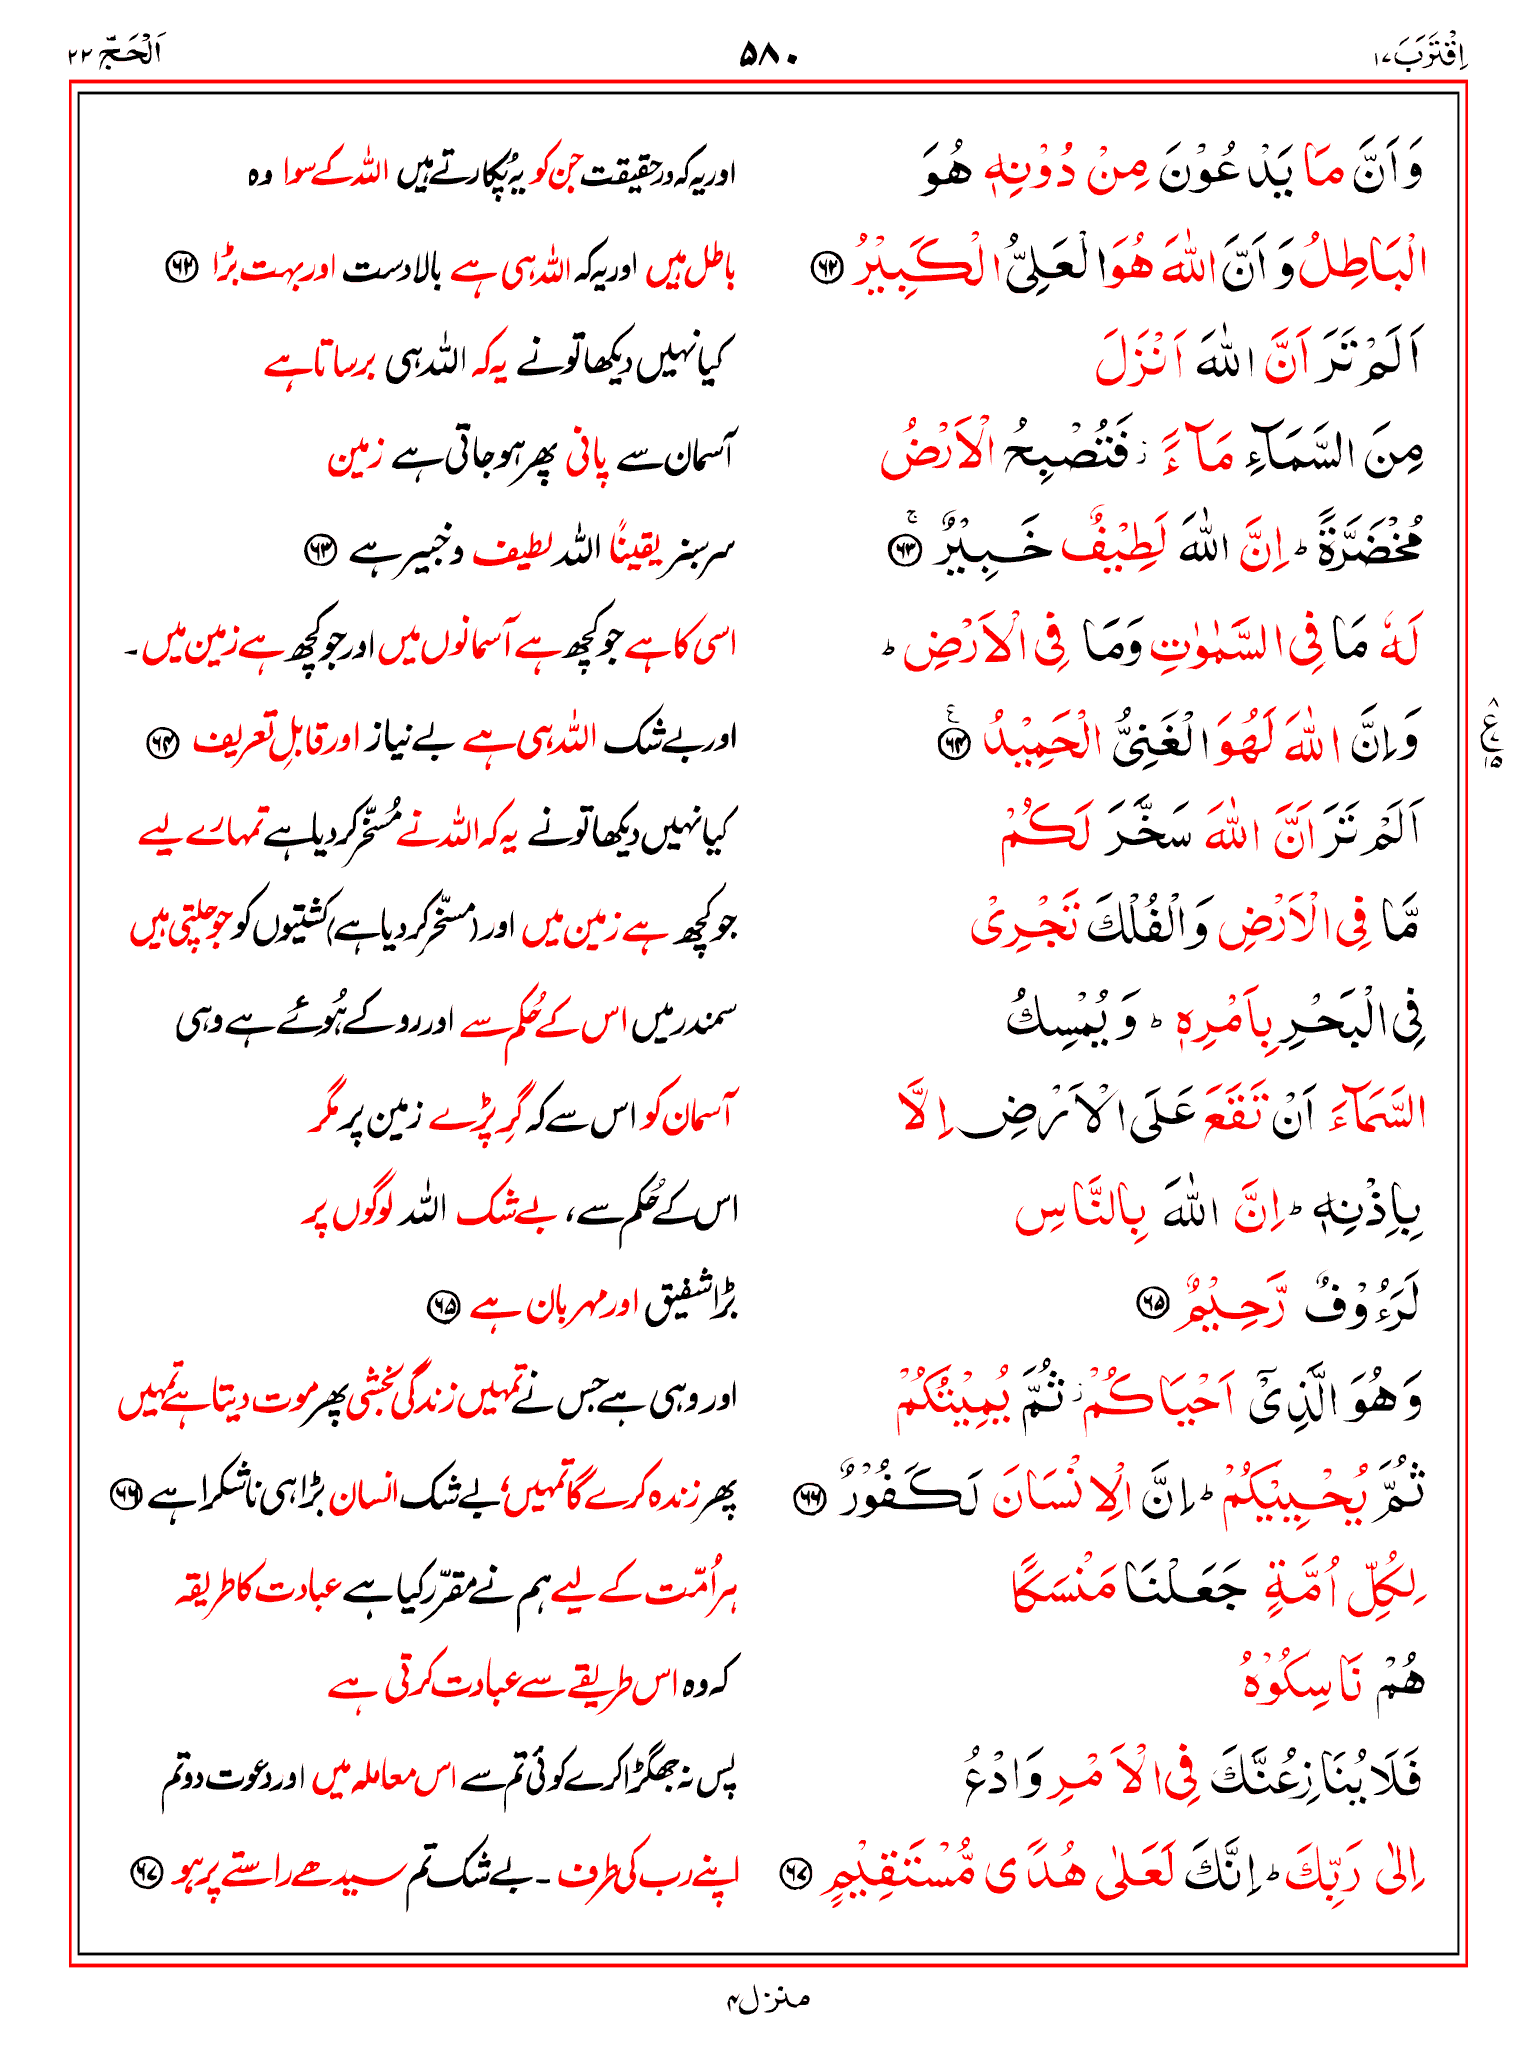 اِقْتَرَبَ ١٧ ۵۸۰ اَلْحَجّ ٢٢
وَاَنَّ مَا يَدْعُوْنَ مِنْ دُوْنِهٖ هُوَ اور یہ کہ درحقیقت جن کو یہ پُکارتے ہیں اللہ کے سوا وہ
الْبَاطِلُ وَاَنَّ اللّٰهَ هُوَ الْعَلِىُّ الْكَبِيْرُ ﴿۶۲﴾ باطل ہیں اور یہ کہ اللہ ہی ہے بالادست اور بہت بڑا ﴿۶۲﴾
اَلَمْ تَرَ اَنَّ اللّٰهَ اَنْزَلَ کیا نہیں دیکھا تو نے یہ کہ اللہ ہی برساتا ہے
مِنَ السَّمَآءِ مَآءً ز فَتُصْبِحُ الْاَرْضُ آسمان سے پانی پھر ہو جاتی ہے زمین
مُخْضَرَّةً ؕ اِنَّ اللّٰهَ لَطِيْفٌ خَبِيْرٌ ۚ﴿۶۳﴾ سرسبز یقیناً اللہ لطیف و خبیر ہے ﴿۶۳﴾
لَهٗ مَا فِى السَّمٰوٰتِ وَمَا فِى الْاَرْضِ ؕ اسی کا ہے جو کچھ ہے آسمانوں میں اور جو کچھ ہے زمین میں۔
وَاِنَّ اللّٰهَ لَهُوَ الْغَنِىُّ الْحَمِيْدُ ﴿۶۴﴾ع اور بے شک اللہ ہی ہے بے نیاز اور قابلِ تعریف ﴿۶۴﴾
۸ ع ۱۵
اَلَمْ تَرَ اَنَّ اللّٰهَ سَخَّرَ لَكُمْ کیا نہیں دیکھا تو نے یہ کہ اللہ نے مُسخّر کر دیا ہے تمہارے لیے
مَّا فِى الْاَرْضِ وَالْفُلْكَ تَجْرِىْ جو کچھ ہے زمین میں اور (مسخّر کر دیا ہے) کشتیوں کو جو چلتی ہیں
فِى الْبَحْرِ بِاَمْرِهٖ ؕ وَيُمْسِكُ سمندر میں اس کے حُکم سے اور روکے ہُوئے ہے وہی
السَّمَآءَ اَنْ تَقَعَ عَلَى الْاَرْضِ اِلَّا آسمان کو اس سے کہ گِر پڑے زمین پر مگر
بِاِذْنِهٖ ؕ اِنَّ اللّٰهَ بِالنَّاسِ اس کے حُکم سے، بے شک اللہ لوگوں پر
لَرَءُوْفٌ رَّحِيْمٌ ﴿۶۵﴾ بڑا شفیق اور مہربان ہے ﴿۶۵﴾
وَهُوَ الَّذِىْۤ اَحْيَاكُمْ ز ثُمَّ يُمِيْتُكُمْ اور وہی ہے جس نے تمہیں زندگی بخشی پھر موت دیتا ہے تمہیں
ثُمَّ يُحْيِيْكُمْ ؕ اِنَّ الْاِنْسَانَ لَكَفُوْرٌ ﴿۶۶﴾ پھر زندہ کرے گا تمہیں؛ بے شک انسان بڑا ہی ناشکرا ہے ﴿۶۶﴾
لِكُلِّ اُمَّةٍ جَعَلْنَا مَنْسَكًا ہر اُمّت کے لیے ہم نے مقرّر کیا ہے عبادت کا طریقہ
هُمْ نَاسِكُوْهُ کہ وہ اس طریقے سے عبادت کرتی ہے
فَلَا يُنَازِعُنَّكَ فِى الْاَمْرِ وَادْعُ پس نہ جھگڑا کرے کوئی تم سے اس معاملہ میں اور دعوت دو تم
اِلٰى رَبِّكَ ؕ اِنَّكَ لَعَلٰى هُدًى مُّسْتَقِيْمٍ ﴿۶۷﴾ اپنے رب کی طرف۔ بے شک تم سیدھے راستے پر ہو ﴿۶۷﴾
منزل ۴